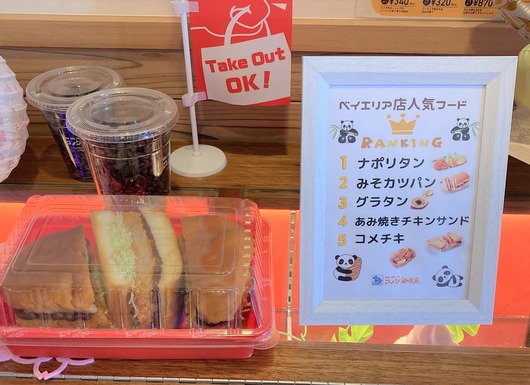 Take Out
OK!
¥340
¥320
¥870
ベイエリア店人気フード
RANKING
1 ナポリタン
2 みそカツパン
3 グラタン
4 あみ焼きチキンサンド
5 コメチキ